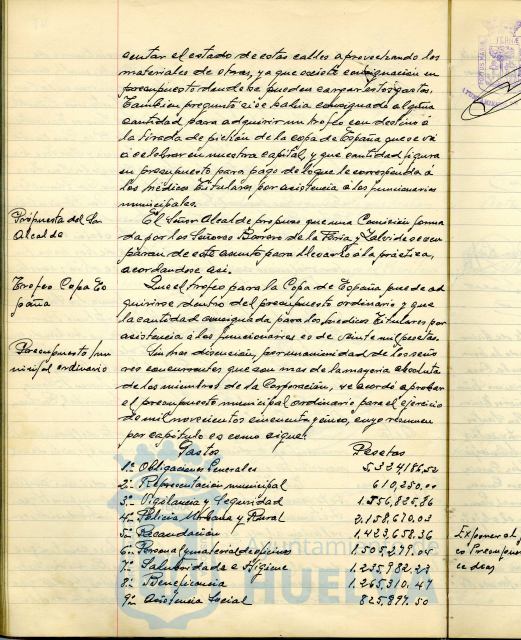 sentar el estado de estas calles aprovechando los
materiales de otras, ya que existe consignación en
presupuesto donde pueden cargarse los gastos.
Tambien preguntó si se habia consignado alguna
cantidad para adquirir un trofeo con destino á
la tirada de pichón de la copa de España que se vá
á celebrar en nuestra capital, y que cantidad figura
en presupuesto para pago de lo que le corresponda á
los médicos titulares por asistencia á los funcionarios
municipales.
Propuesta del Sr.
Alcalde
El Señor Alcalde propuso que una Comisión forma
da por los Señores Borrero de la Feria y Zalvide se ocu
paran de este asunto para llevarlo á la práctica,
acordandose asi.
Trofeo Copa Es
paña
Que el trofeo para la Copa de España puede ad
quirirse dentro del presupuesto ordinario y que
la cantidad consignada para los Medicos Titulares por
asistencia á los funcionarios es de veinte mil pesetas.
Presupuesto mu
nicipal ordinario
Sin mas discusión, por unanimidad de los seño
res concurrentes que son mas de la mayoria absoluta
de los miembros de la Corporación, se acordó aprobar
el presupuesto municipal ordinario para el ejercicio
de mil novecientos cincuenta y cinco, cuyo resumen
por capitulo es como sigue:
Gastos Pesetas
1º Obligaciones Generales 5.324,186,52
2º Representación municipal 610,250,00
3º Vigilancia y Seguridad 1.556,825,86
4º Policia Urbana y Rural 2.158,670,03
5º Recaudación 1.423,658,36
6º Personal y material de oficinas 1.505,279,05
7º Salubridad e Higiene 1.235,782,23
8º Beneficencia 1.265,310,47
9º Asistencia Social 825,897,50
Exponer al
Ayuntamiento de
HUELVA